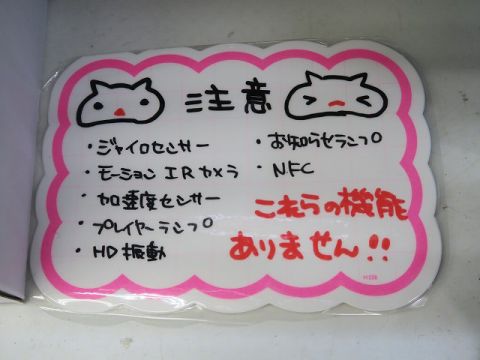 注意
・ジャイロセンサー
・モーションIRカメラ
・加速度センサー
・プレイヤーランプ
・HD振動
・お知らせランプ
・NFC
これらの機能
ありません!!